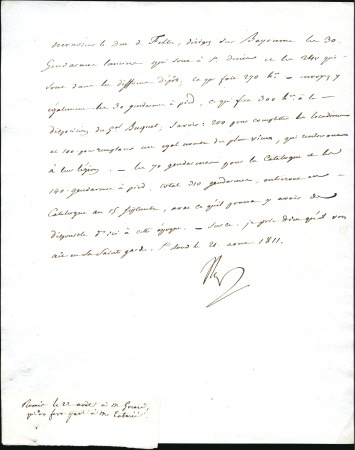 Monsieur le duc de Feltre, dirigez sur Bayonne les 30
Gendarmes lanciers qui sont à St denis et les 240 qui
sont dans les différens dépôts, ce qui fait 270 hes — envoyez y
également les 30 gendarmes à pied, ce qui fera 300 hes à la
disposition du Gal Buquet, Savoir: 200 pour completter les escadrons
et 100 pour remplacer un egal nombre des plus vieux, qui rentreront
à leur légion. — les 70 gendarmes pour la Catalogne et les
140 gendarmes à pied, total 210 gendarmes, entreront en
Catalogne au 15 Septembre, avec ce qu'il pourra y avoir de
disponible d'ici à cette époque. — Sur ce, je prie Dieu qu'il vous
ait en sa Sainte garde. St Cloud le 21 aout 1811.
Np
Renvoi le 22 août à M. Gerard,
qu'en fera part à M.